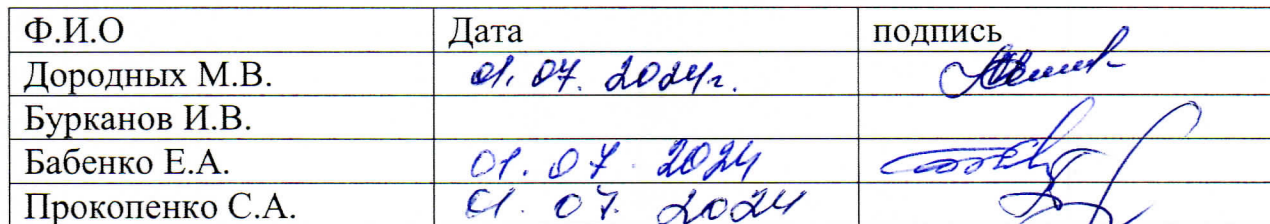 Ф.И.О Дата подпись
Дородных М.В. 01.07.2024г.
Бурканов И.В.
Бабенко Е.А. 01.07.2024
Прокопенко С.А. 01.07.2024